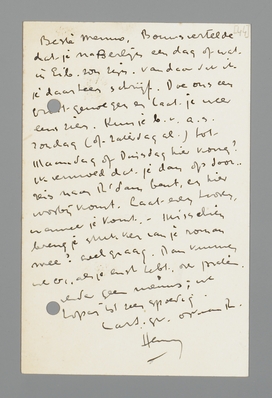 Beste Menno, Bouws vertelde
dat je na Berlijn een dag of wat
in Eib. zou zijn, vandaar dat ik
je daarheen schrijf. Doe ons een
genoegen en laat je weer
eens zien. Kun je b.v. a.s.
Zondag (of Zaterdag al) tot
Maandag of Dinsdag hier komen?
Ik vermoed dat je dan op door-
reis naar R'dam bent, en hier
voorbij komt. Laat even horen,
wanneer je komt. - Misschien
breng je stukken van je roman
mee? heel graag. Dan kunnen
we er, als je lust hebt, over praten.
Verder geen nieuws; we
hopen tot zeer spoedig.
Hart. gr. ook van
Henny